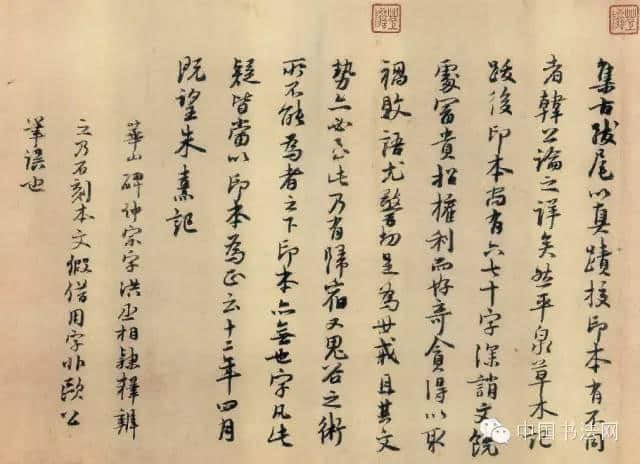 集古跋尾以真蹟校印本有不同
者韓公論之詳矣然平泉草木記
跋後印本尚有六七十字深誚文饒
處富貴招權利而好奇貪得以取
禍敗語尤警切足為世戒且其文
勢亦必至此乃有歸宿又鬼谷之術
所不能為者之下印本亦無也字凡此
疑皆當以印本為正云十二年四月
既望朱熹記
華山碑仲宗字洪丞相隸釋辨
之乃石刻本文假借用字非歐公
筆誤也
中国书法网